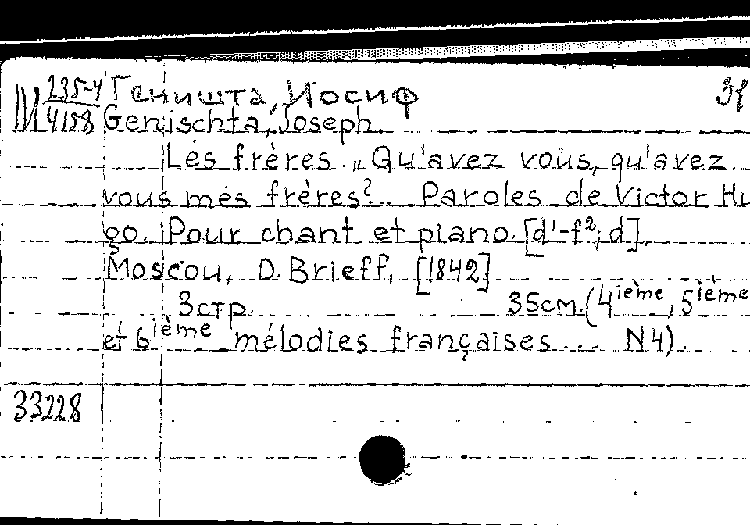 235-4 Геништа, Иосиф
Ш 4158 Genischta, Joseph.
Les frères. „Qu'avez vous, qu'avez
vous mes frères? Paroles de Victor Hu
go. Pour chant et piano. [d'-f²; d].
Moscou, D. Brieff, [1842]
3стр. 35см. (4ième, 5ième
et 6ième mélodies françaises... N4).
33228